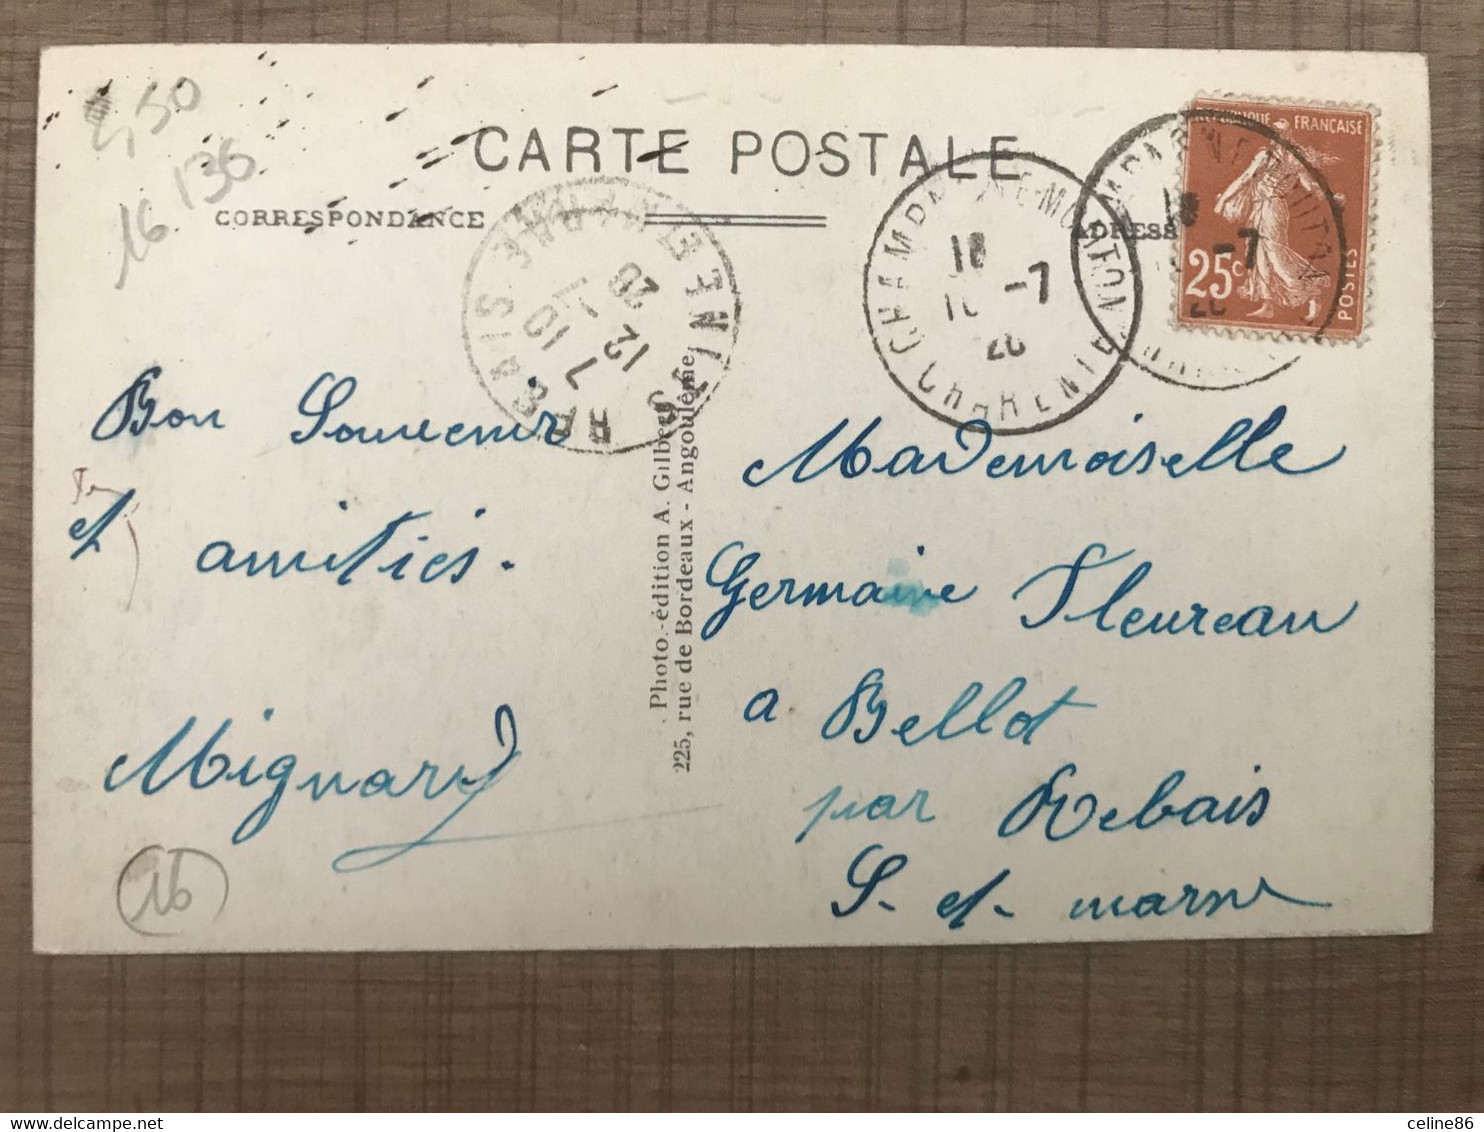 4,50
16 136
CARTE POSTALE
CORRESPONDANCE
ADRESSE
REPUBLIQUE FRANÇAISE
25c
POSTES
CHAMPAGNE-MOUTON
CHARENTE
18
-7
REBAIS
SEINE ET MARNE
12
7 10
Bon Souvenir
et amitiés.
Mignard
16
Photo.-édition A. Gilbert
225, rue de Bordeaux - Angoulême
Mademoiselle
Germaine Fleureau
a Bellot
par Rebais
S. et. marne
celine86